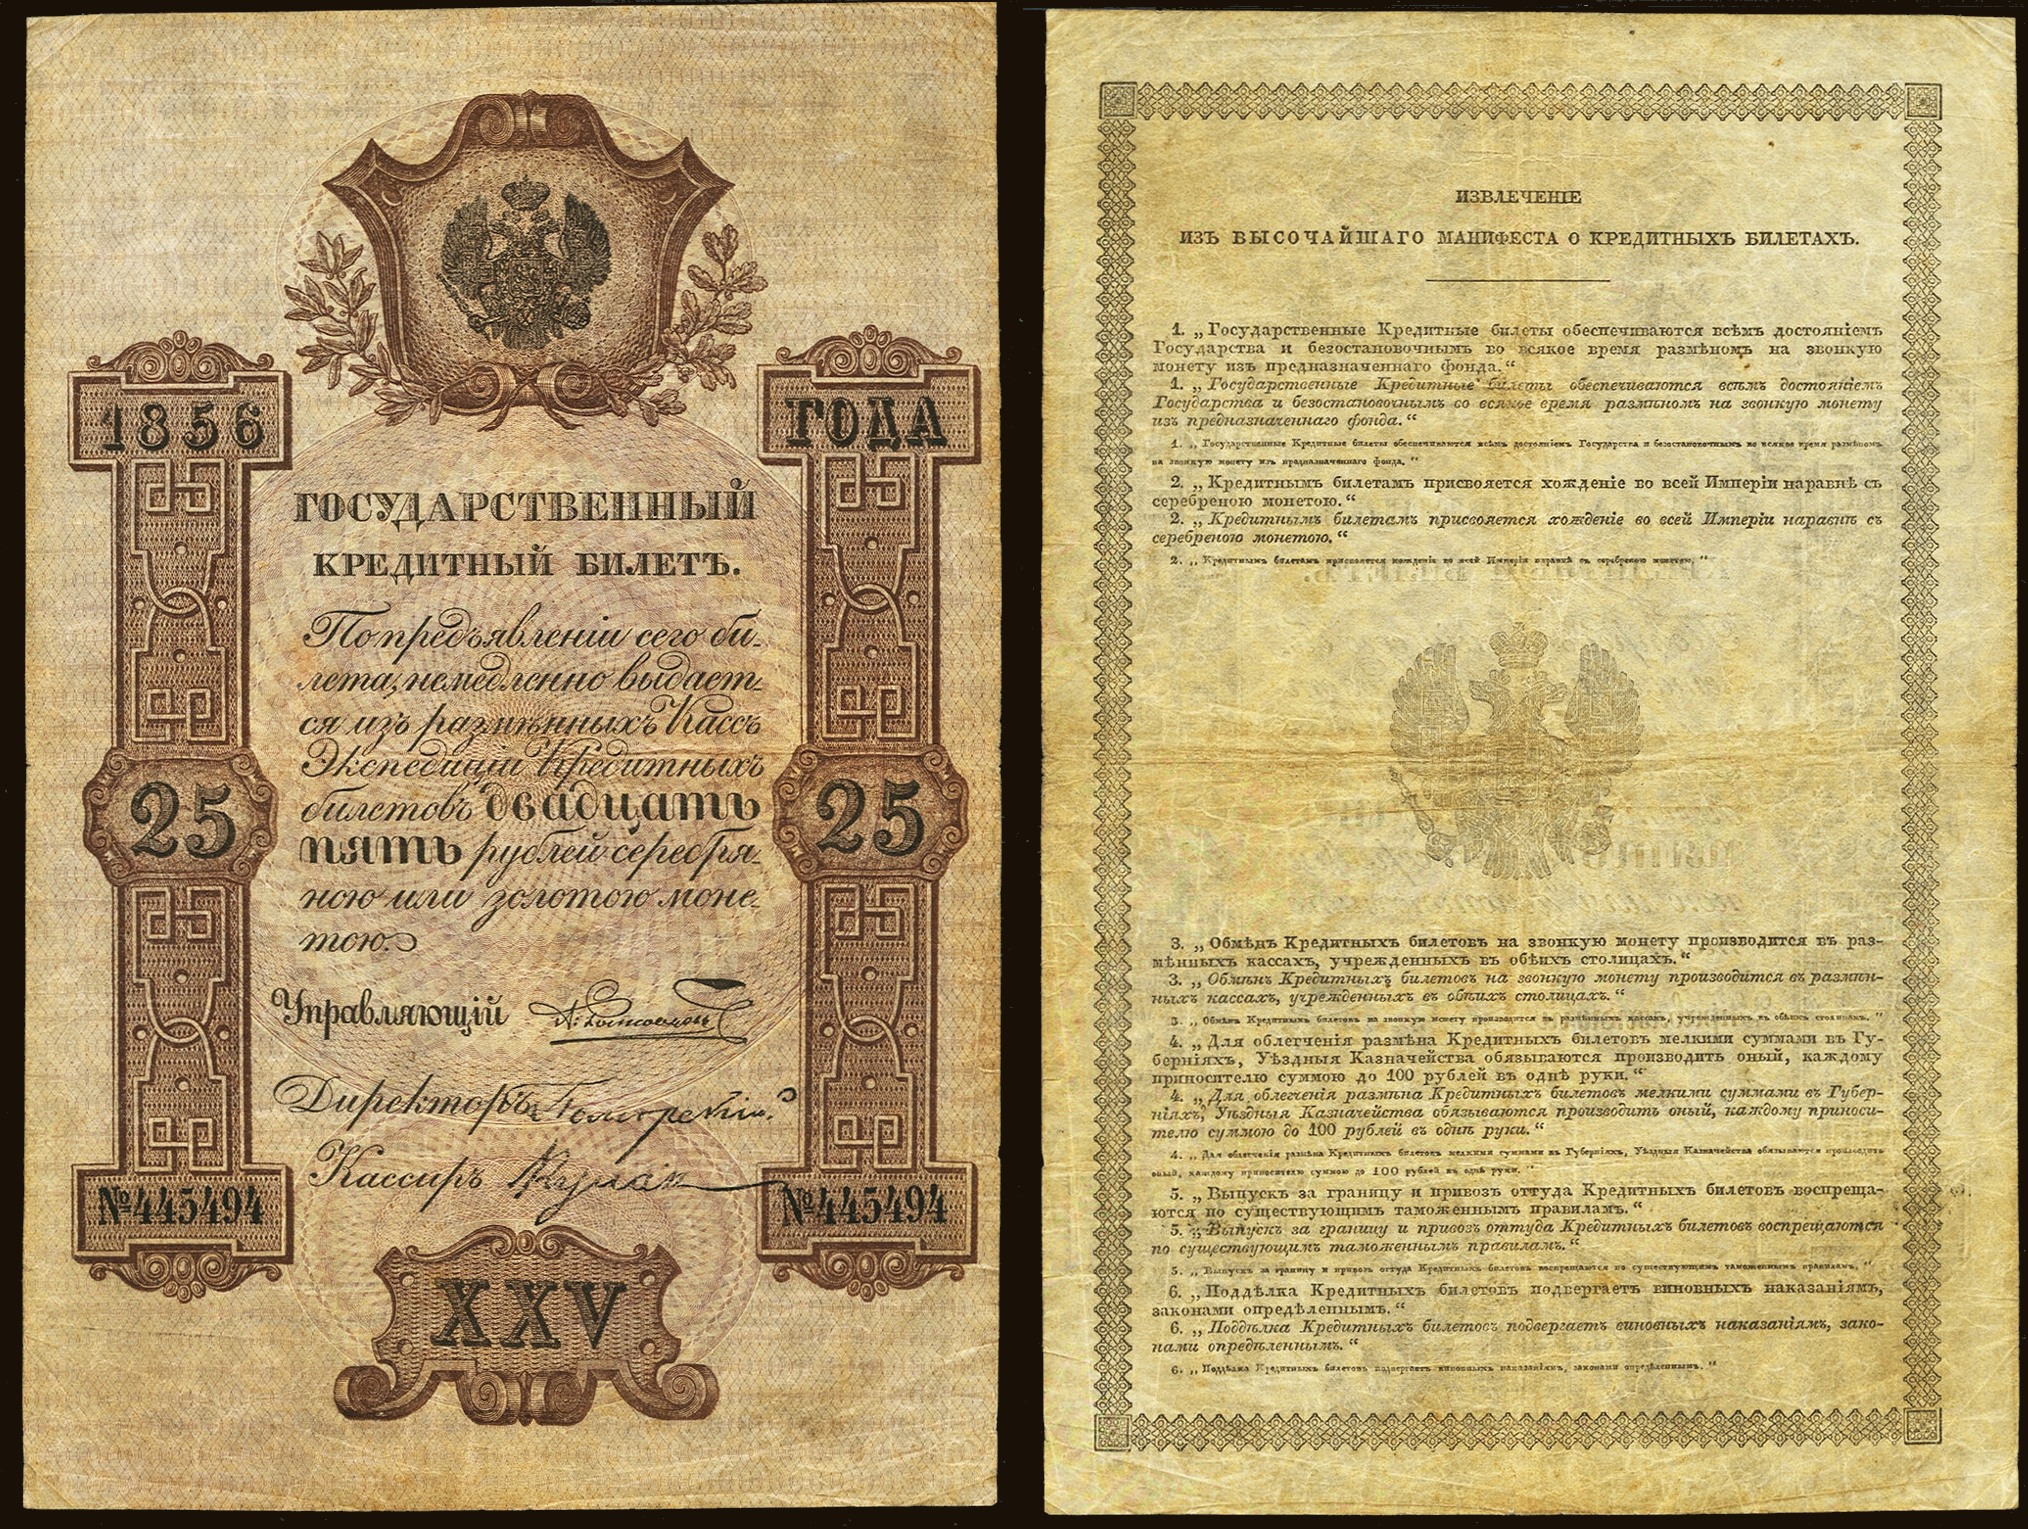 1856 ГОДА
ГОСУДАРСТВЕННЫЙ
КРЕДИТНЫЙ БИЛЕТЪ.
По предъявленіи сего би-
лета, немедленно выдает-
ся изъ размѣнныхъ Кассъ
Экспедиціи Кредитныхъ
билетовъ двадцать
пять рублей серебря-
ною или золотою моне-
тою.
25 25
Управляющій
Директоръ
Кассиръ
№445494 №445494
XXV
ИЗВЛЕЧЕНІЕ
ИЗЪ ВЫСОЧАЙШАГО МАНИФЕСТА О КРЕДИТНЫХЪ БИЛЕТАХЪ.
1. „Государственные Кредитные билеты обеспечиваются всѣмъ достояніемъ
Государства и безостановочнымъ во всякое время размѣномъ на звонкую
монету изъ предназначеннаго фонда.“
1. „Государственные Кредитные билеты обеспечиваются всѣмъ достояніемъ
Государства и безостановочнымъ во всякое время размѣномъ на звонкую монету
изъ предназначеннаго фонда.“
1. „Государственные Кредитные билеты обеспечиваются всѣмъ достояніемъ Государства и безостановочнымъ во всякое время размѣномъ
на звонкую монету изъ предназначеннаго фонда.“
2. „Кредитнымъ билетамъ присвояется хожденіе во всей Имперіи наравнѣ съ
серебреною монетою.“
2. „Кредитнымъ билетамъ присвояется хожденіе во всей Имперіи наравнѣ съ
серебреною монетою.“
2. „Кредитнымъ билетамъ присвояется хожденіе во всей Имперіи наравнѣ съ серебреною монетою.“
3. „Обмѣнъ Кредитныхъ билетовъ на звонкую монету производится въ раз-
мѣнныхъ кассахъ, учрежденныхъ въ обѣихъ столицахъ.“
3. „Обмѣнъ Кредитныхъ билетовъ на звонкую монету производится въ размѣн-
ныхъ кассахъ, учрежденныхъ въ обѣихъ столицахъ.“
3. „Обмѣнъ Кредитныхъ билетовъ на звонкую монету производится въ размѣнныхъ кассахъ, учрежденныхъ въ обѣихъ столицахъ.“
4. „Для облегченія размѣна Кредитныхъ билетовъ мелкими суммами въ Гу-
берніяхъ, Уѣздныя Казначейства обязываются производить оный, каждому
приносителю суммою до 100 рублей въ однѣ руки.“
4. „Для облегченія размѣна Кредитныхъ билетовъ мелкими суммами въ Губер-
ніяхъ, Уѣздныя Казначейства обязываются производить оный, каждому приноси-
телю суммою до 100 рублей въ однѣ руки.“
4. „Для облегченія размѣна Кредитныхъ билетовъ мелкими суммами въ Губерніяхъ, Уѣздныя Казначейства обязываются производить
оный, каждому приносителю суммою до 100 рублей въ однѣ руки.“
5. „Выпускъ за границу и привозъ оттуда Кредитныхъ билетовъ воспреща-
ются по существующимъ таможеннымъ правиламъ.“
5. „Выпускъ за границу и привозъ оттуда Кредитныхъ билетовъ воспрещаются
по существующимъ таможеннымъ правиламъ.“
5. „Выпускъ за границу и привозъ оттуда Кредитныхъ билетовъ воспрещаются по существующимъ таможеннымъ правиламъ.“
6. „Поддѣлка Кредитныхъ билетовъ подвергаетъ виновныхъ наказаніямъ,
законами опредѣленнымъ.“
6. „Поддѣлка Кредитныхъ билетовъ подвергаетъ виновныхъ наказаніямъ, зако-
нами опредѣленнымъ.“
6. „Поддѣлка Кредитныхъ билетовъ подвергаетъ виновныхъ наказаніямъ, законами опредѣленнымъ.“